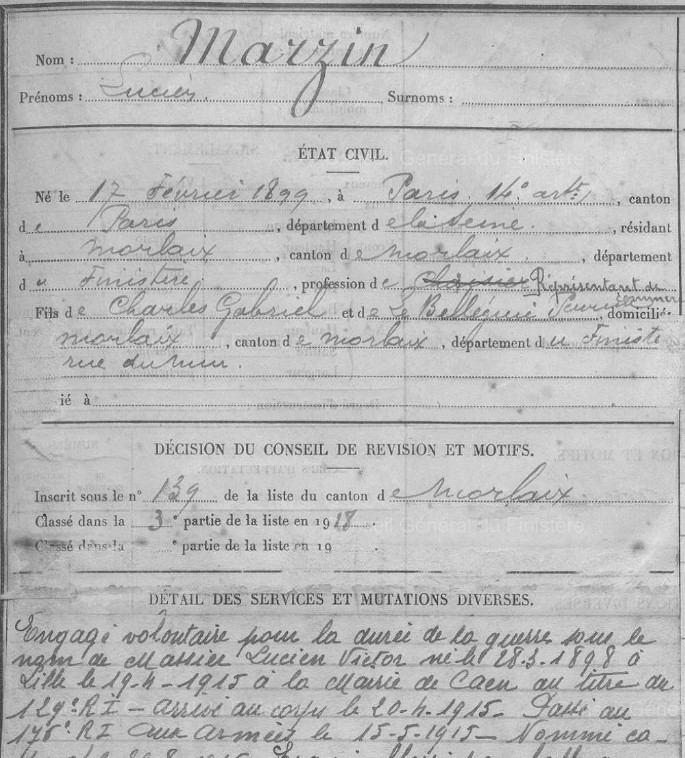 Nom : Marzin
Prénoms : Lucien. Surnoms :
ÉTAT CIVIL.
Né le 17 Février 1899, à Paris 14e arrt, canton
de Paris, département de la Seine., résidant
à Morlaix, canton de Morlaix., département
du Finistère, profession de Représentant de commerce
Fils de Charles Gabriel et de Le Belléguic, domicilié
Morlaix, canton de Morlaix, département du Finistè
rue du Mur.
ié à
DÉCISION DU CONSEIL DE REVISION ET MOTIFS.
Inscrit sous le n° 139 de la liste du canton de Morlaix.
Classé dans la 3e partie de la liste en 1918.
Classé dans la e partie de la liste en 19 .
DÉTAIL DES SERVICES ET MUTATIONS DIVERSES.
Engagé volontaire pour la durée de la guerre sous le
nom de Lucien Victor né le 28.3.1898 à
Lille le 19-4-1915 à la Mairie de Caen au titre du
129e RI – arrivé au corps le 20-4-1915- Passé au
176e RI aux Armées le 15-5-1915- Nommé ca-
Conseil Général du Finistère